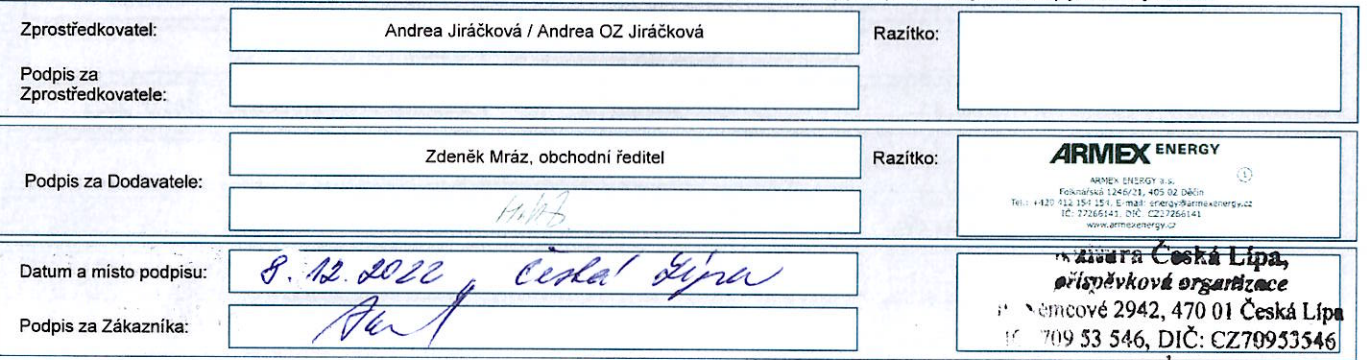 Zprostředkovatel:
Andrea Jiráčková / Andrea OZ Jiráčková
Razítko:
Podpis za
Zprostředkovatele:
Podpis za Dodavatele:
Zdeněk Mráz, obchodní ředitel
Razítko:
ARMEX ENERGY
ARMEX ENERGY a.s.
Folknářská 1246/21, 405 02 Děčín
Tel.: +420 412 154 154, E-mail: energy@armexenergy.cz
www.armexenergy.cz
Datum a místo podpisu:
8.12.2022, Česká Lípa
Podpis za Zákazníka:
Česká Lípa,
příspěvková organizace
2942, 470 01 Česká Lípa
709 53 546, DIČ: CZ70953546